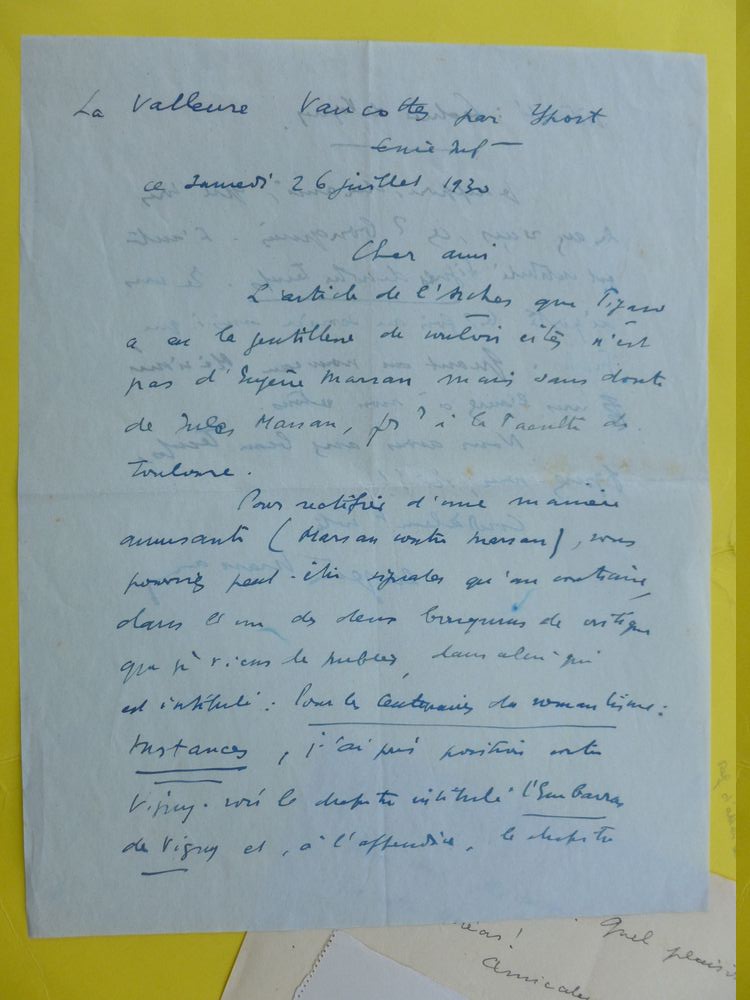 La Valleuse Vaucottes par Yport
Seine Inf
ce Samedi 26 juillet 1930
Cher ami
L'article de l'Archer que Figaro
a eu la gentillesse de vouloir citer n'est
pas d'Eugène Marsan mais sans doute
de Jules Marsan, pr à la Faculté de
Toulouse.
Pour rectifier d'une manière
amusante (Marsan contre Marsan), vous
pourriez peut-être signaler qu'au contraire,
dans l'un des deux bouquins de critique
que je viens de publier, dans celui qui
est intitulé : Pour le Centenaire du romantisme :
Instances, j'ai pris position contre
Vigny. voir le chapitre intitulé l'Embarras
de Vigny et, à l'appendice, le chapitre
Quel plaisir
Amicale